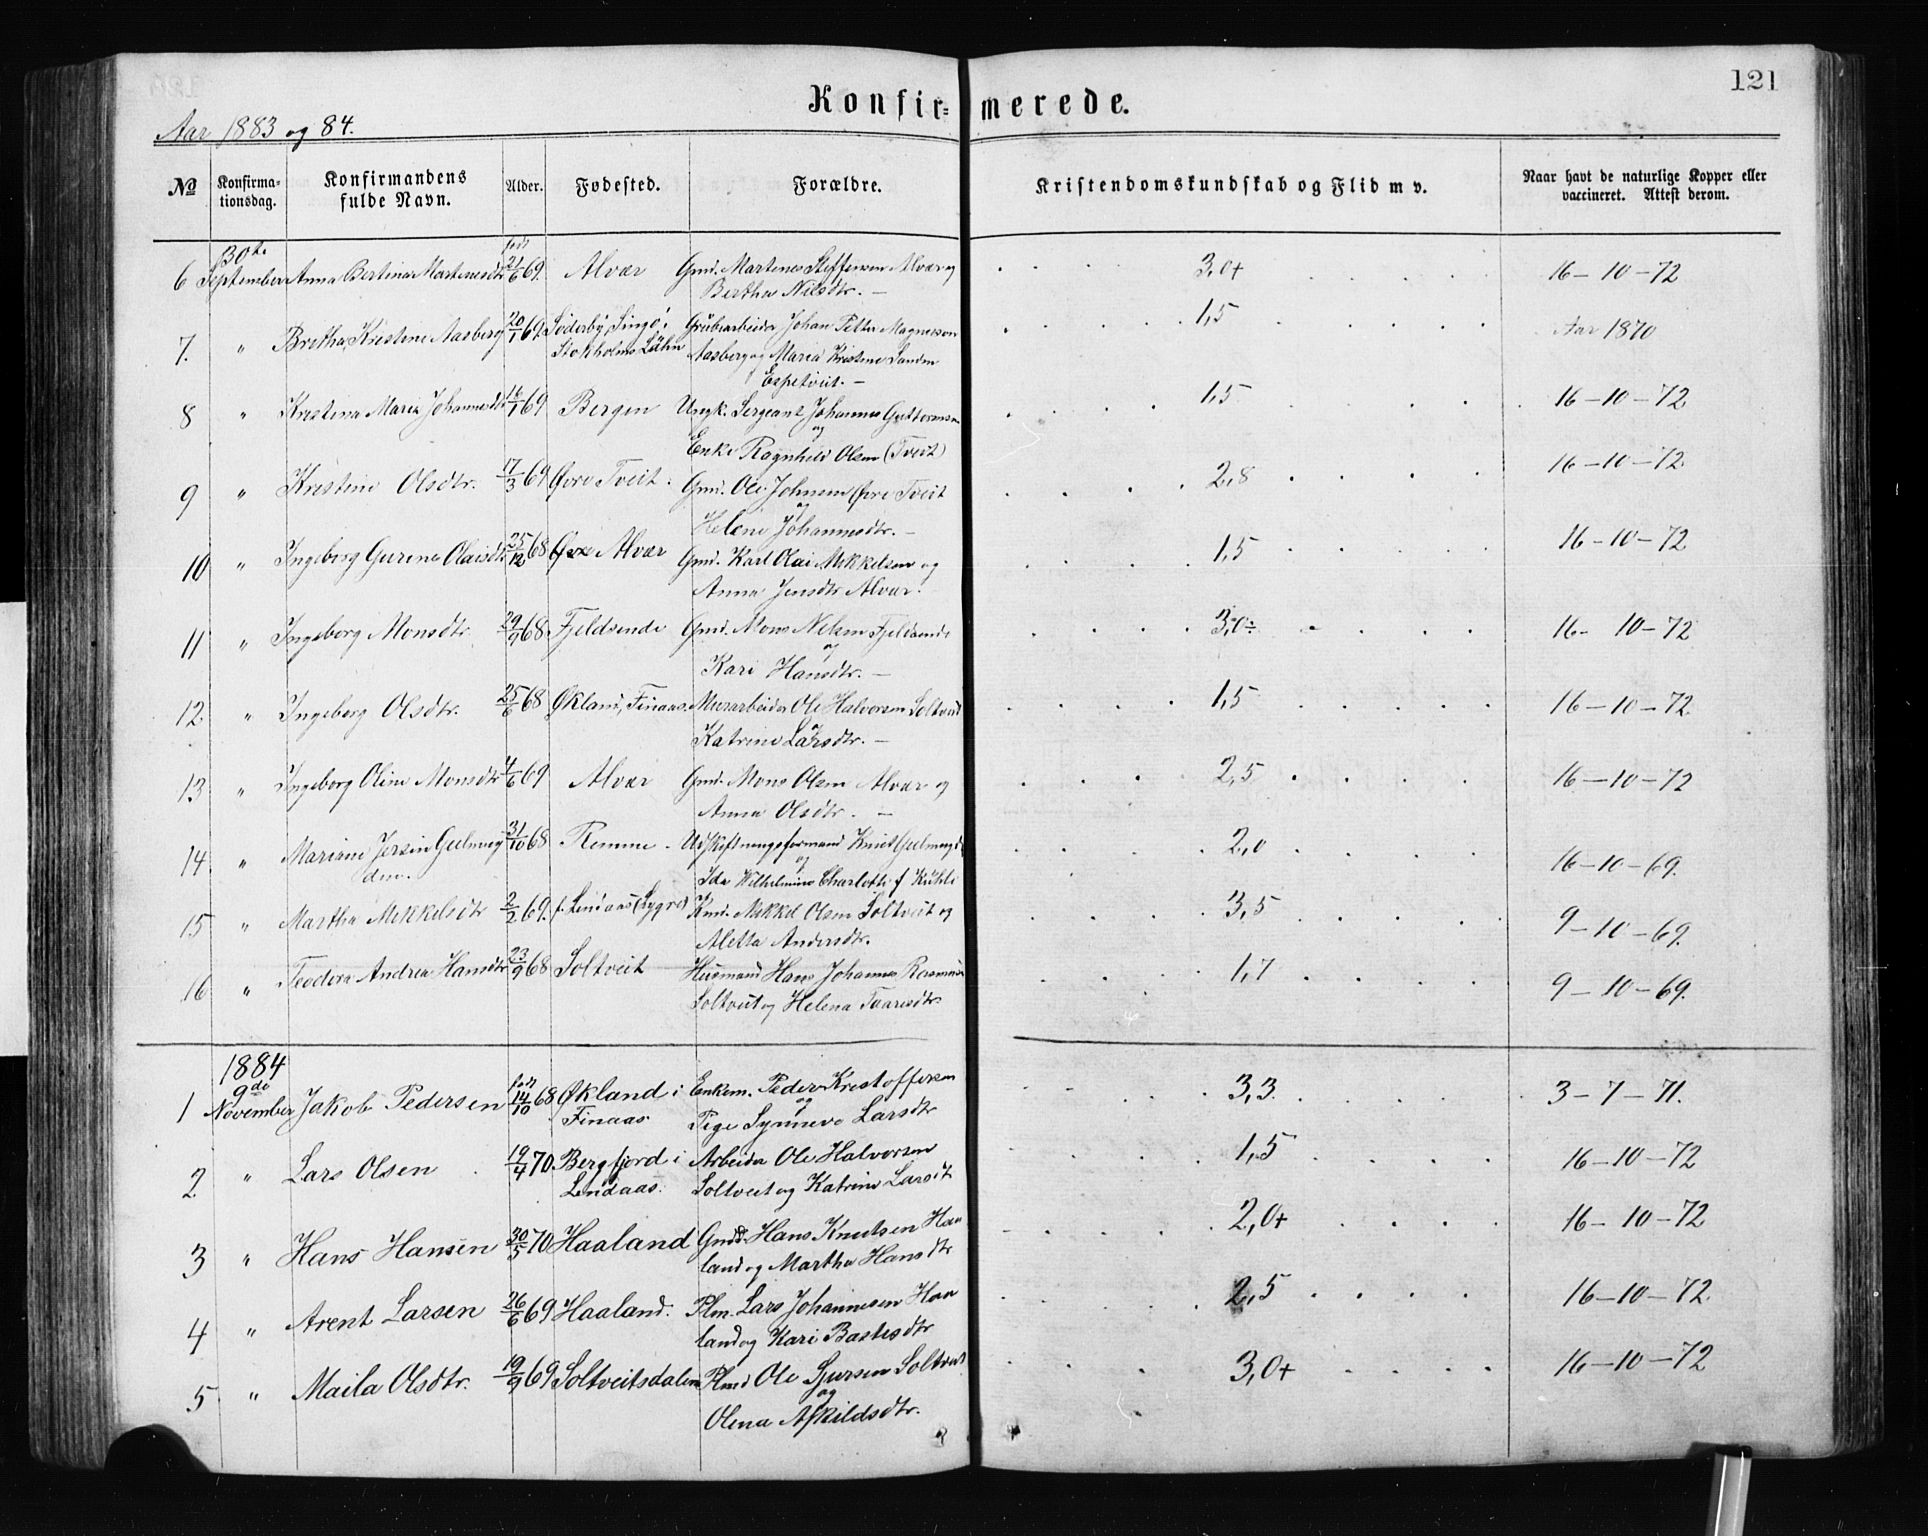 121
Konfirmerede.
Aar 1883 og 84.
No Konfirmationsdag. Konfirmandens fulde Navn. Alder. Fødested. Forældre. Kristendomskundskab og Flid m v. Naar havt de naturlige Kopper eller vaccineret. Attest derom.
6 30te September Anna Bertina Martinesdtr født 21/6 69. Alvær Gmd. Martines Steffensen Alvær og 3,0+ 16-10-72
Bertha Nilsdtr. —
7. " Bretha Kristine Aasberg 20/1 69. Söderby, Singö i Grubearbeider Johan Petter Magnerson 1,5 Aar 1870
Stokholms Lähn Aasberg og Maria Kristine Sanden
Espetveit. —
8 " Kristina Maria Johannesdtr 16/1 69 Bergen Ungk. Sergeant Johannes Guttormsen 1,5 16-10-72
og
Enke Ragnhild Olsen (Tveit)
9 " Kristine Olsdtr. 17/3 69 Øvre Tveit. Gmd. Ole Johnsen Øvre Tveit 2,8 16-10-72
og
Helene Johannesdtr. —
10 " Ingeborg Gurine Olaisdtr 25/12 68 Øvre Alvær Gmd. Karl Olai Mikkelsen og 1,5 16-10-72
Anna Jensdtr Alvær.
11 " Ingeborg Monsdtr. 29/9 68 Fjeldsende Gmd. Mons Nilsen Fjeldsende 3,0÷ 16-10-72
og
Kari Hansdtr. —
12 " Ingeborg Olsdtr. 25/6 68 Økland, Finaas. Murarbeider Ole Halvorsen Soltveit 1,5 16-10-72
og
Katrine Larsdtr. —
13 " Ingeborg Oline Monsdtr 4/6 69 Alvær Gmd. Mons Olsen Alvær og 2,5 16-10-72
Anna Olsdtr. —
14 " Mariane Jersin Gulmyg 31/10 68 Remme. Udskiftningsformand Knut 2,0 16-10-69.
og
Ida Wilhelmine Charlotte f
15 " Martha Mikkelsdtr 2/2 69. f. Lindaas (Lygre) Kmd. Mikkel Olsen Soltveit og 3,5 9-10-69.
Aletta Andersdtr.
16 " Teodora Andrea Hansdtr 23/9 68 Soltveit Husmand Hans Johannes Rasmusen 1,7 9-10-69.
Soltveit og Helena Taaresdtr.
1884
1 9de November Jakob Pedersen født 14/10 68 Økland i Enkem. Peder Kristoffersen 3,3. 3-7-71.
og
Finaas. Pige Synneve Larsdtr
2 " Lars Olsen 19/4 70 Bergfjord i Arbeider Ole Halvorsen 1,5 16-10-72
Lindaas. Soltveit og Katrine Larsdt
3 " Hans Hansen 30/5 70 Haaland Gmd. Hans Knutsen Haa 2,0+ 16-10-72
land og Martha Hansdtr
4 " Arent Larsen 26/6 69 Haaland. Plm. Lars Johannesen Haa 2,5 16-10-72.
land og Kari Bastesdtr
5 " Maila Olsdtr. 19/9 69 Soltveitsdalen Plmd Ole Sjursen Soltveit 3,0+ 16-10-72
og
Olena Askildsdtr.